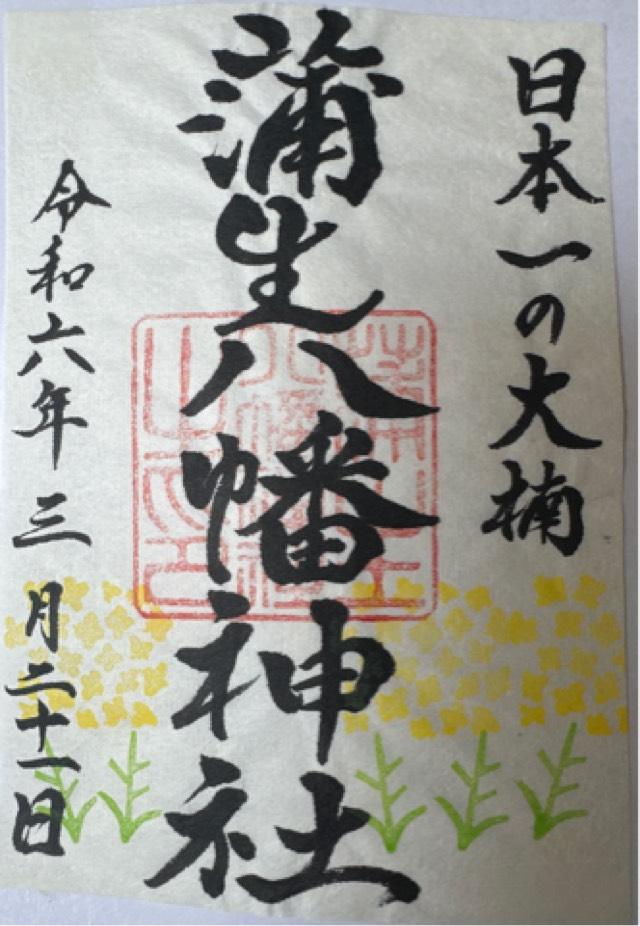 日本一の大楠
蒲生八幡神社
令和六年三月二十一日